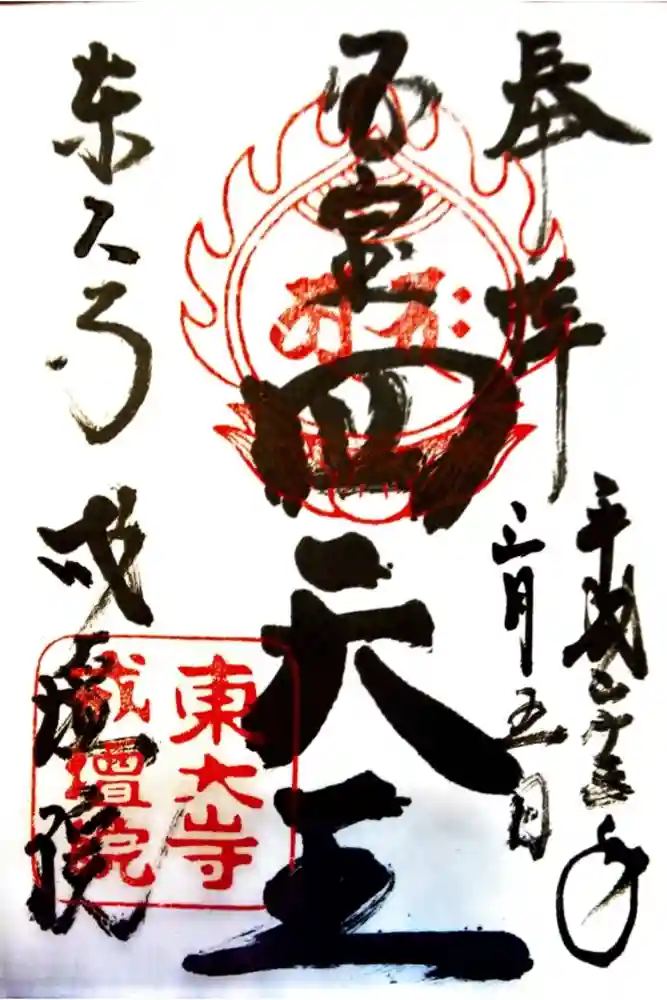 奉拝
平成二十三年
三月五日
国宝
四天王
東大寺
戒壇院
東大寺
戒壇院